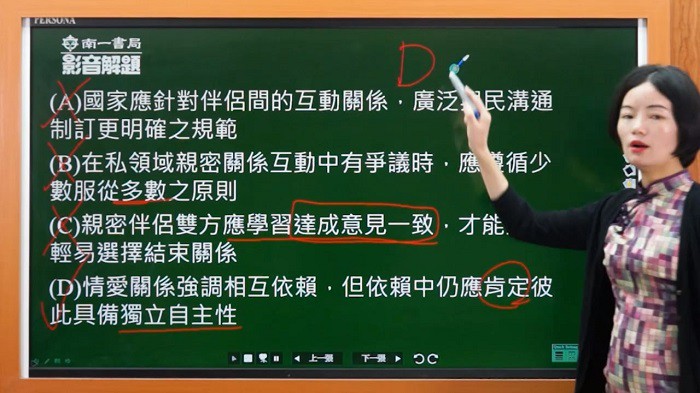 PERSONA
南一書局
影音解題
D
(A)國家應針對伴侶間的互動關係，廣泛 民溝通
制訂更明確之規範
(B)在私領域親密關係互動中有爭議時，應遵循少
數服從多數之原則
(C)親密伴侶雙方應學習達成意見一致，才能
輕易選擇結束關係
(D)情愛關係強調相互依賴，但依賴中仍應肯定彼
此具備獨立自主性
上一張 下一張